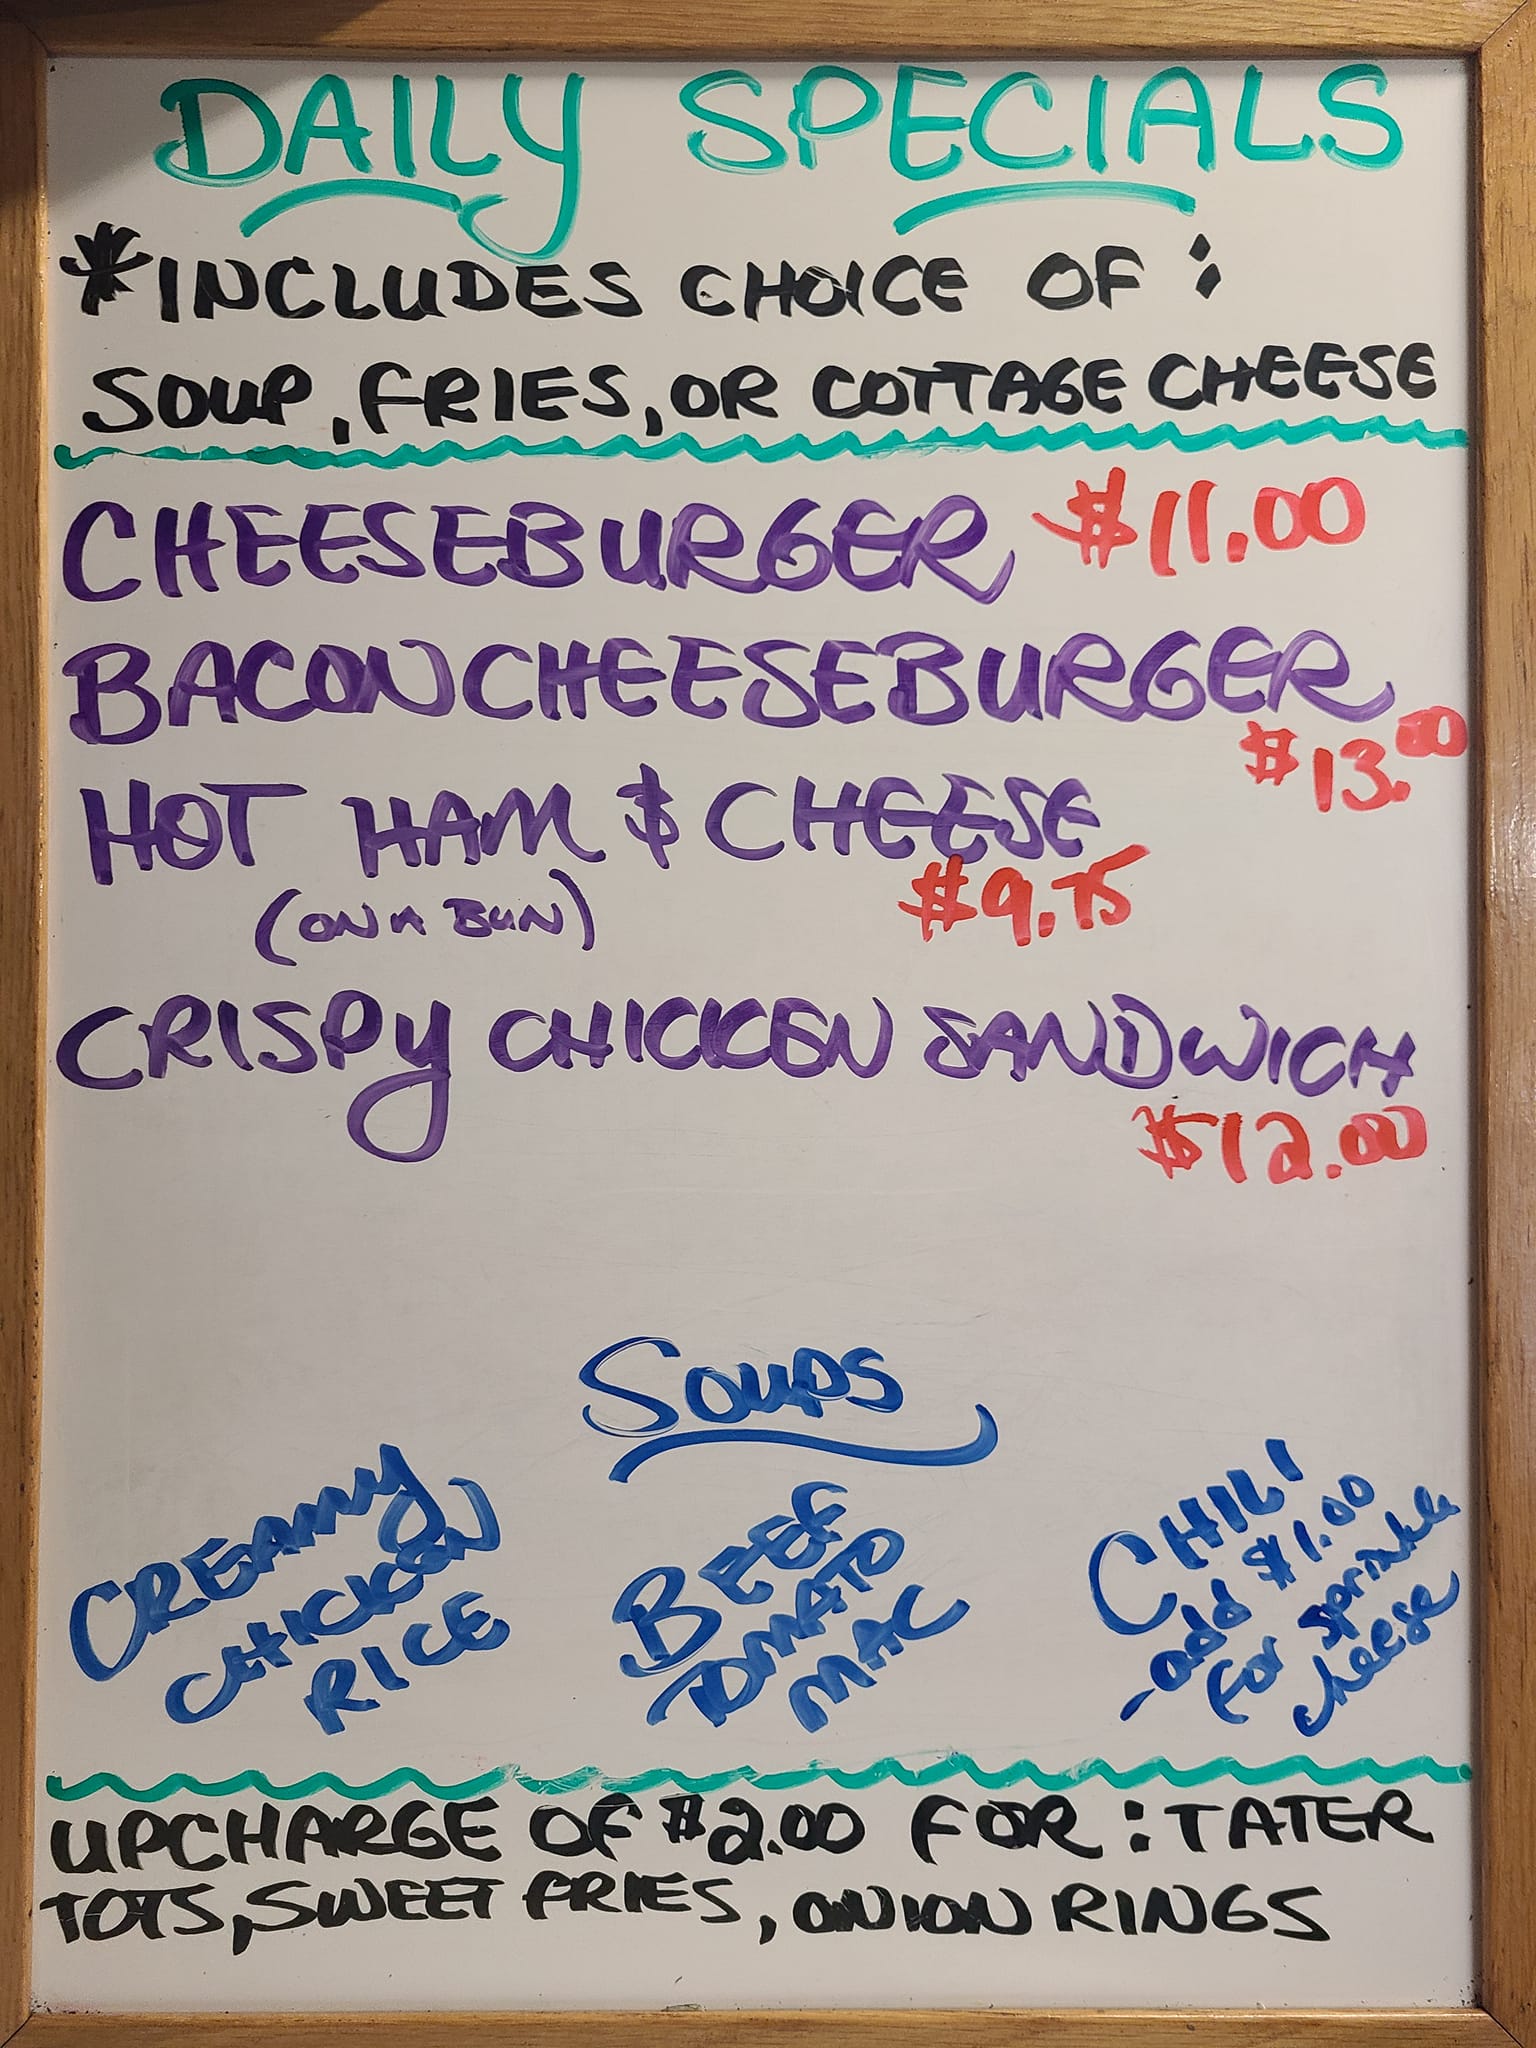 DAILY SPECIALS
*INCLUDES CHOICE OF:
SOUP, FRIES, OR COTTAGE CHEESE
CHEESEBURGER $11.00
BACON CHEESEBURGER
$13.00
HOT HAM & CHEESE
(ON A BUN) $9.75
CRISPY CHICKEN SANDWICH
$12.00
Soups
CREAMY
CHICKEN
RICE
BEEF
TOMATO
MAC
CHILI
-add $1.00
for sprinkle
cheese
UPCHARGE OF $2.00 FOR: TATER
TOTS, SWEET FRIES, ONION RINGS